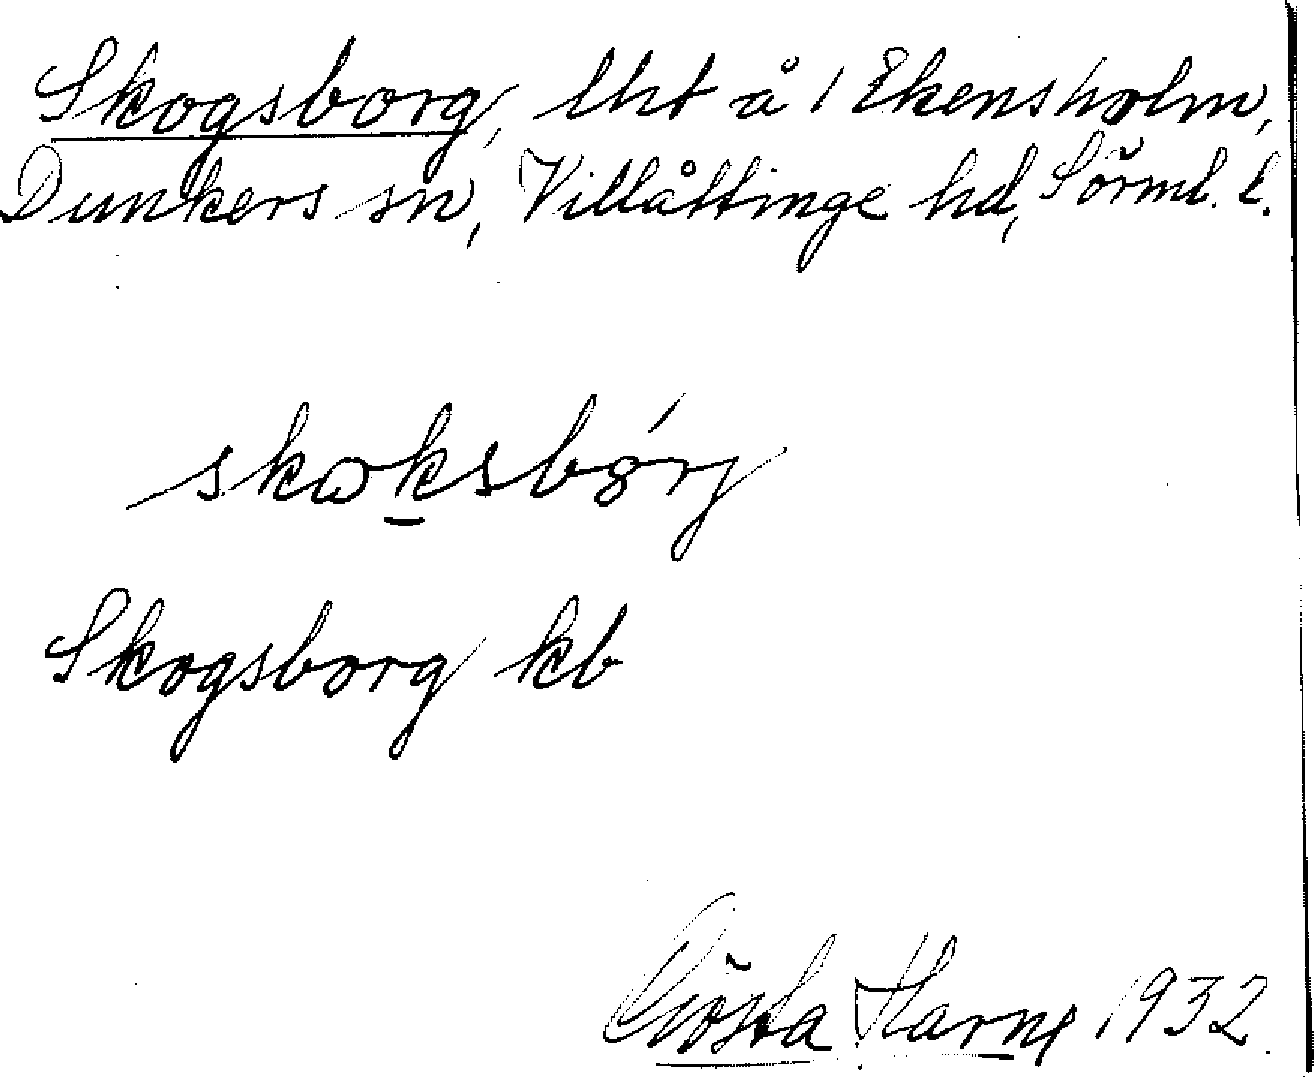 Skogsborg, lht å / Ekensholm,
Dunkers sn, Villåttinge hd, Sörml. l.
skωksbórj
Skogsborg kb
Gösta Harne 1932